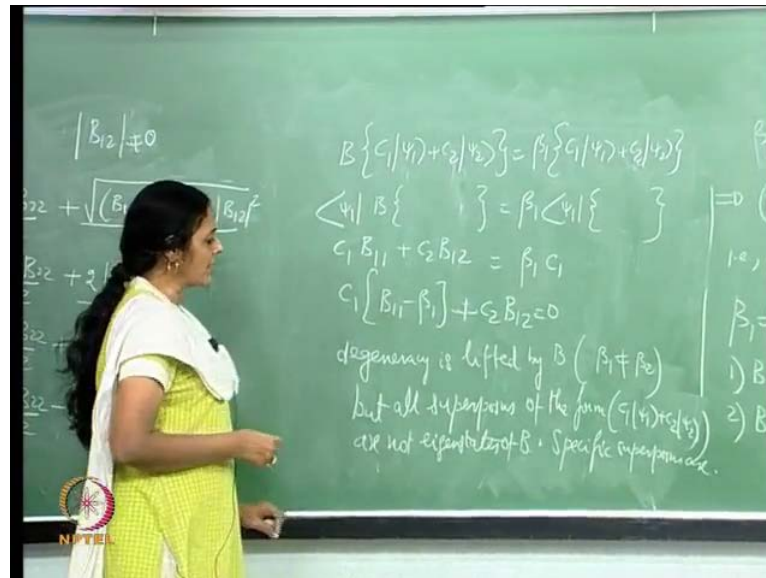 |B₁₂| ≠ 0
B₂₂ + √(B₁ |B₁₂|²
B₂₂ + 2|B
2
B₂₂ +
2
B₂₂ -
2
B{C₁|ψ₁⟩+C₂|ψ₂⟩} = β₁{C₁|ψ₁⟩+C₂|ψ₂⟩}
⟨ψ₁| B{ } = β₁⟨ψ₁|{ }
C₁ B₁₁ + C₂ B₁₂ = β₁ C₁
C₁[B₁₁-β₁] + C₂ B₁₂=0
degeneracy is lifted by B (β₁ ≠ β₂)
but all superposns of the form (C₁|ψ₁⟩+C₂|ψ₂⟩)
are not eigenstates of B. Specific superposns are.
β
⇒ (
i.e,
β₁=
1) B
2) B
NPTEL